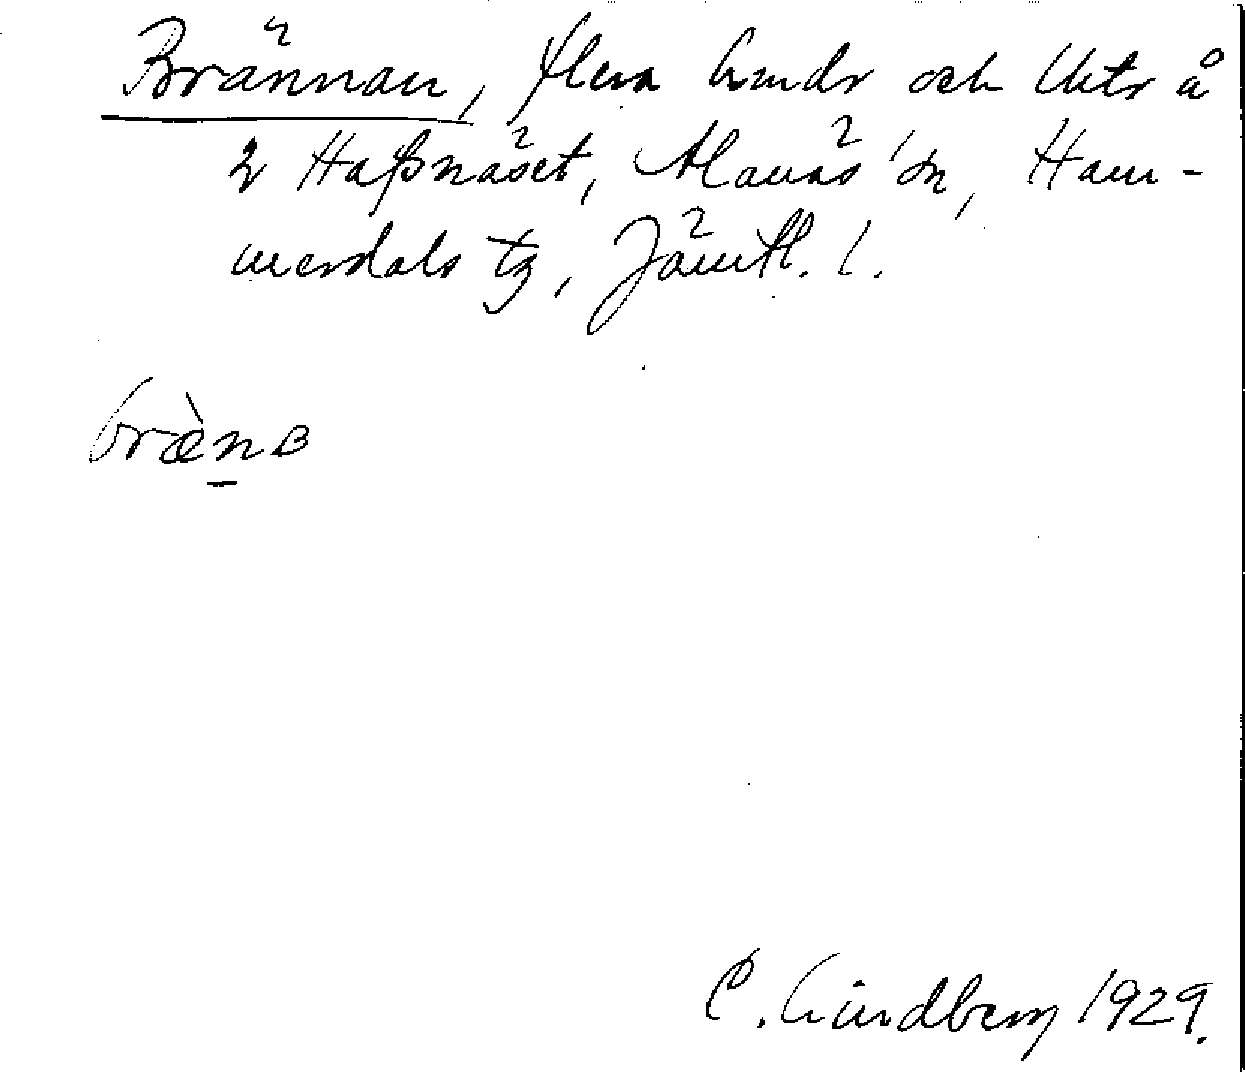 Brännan, flera lindr och Uktr å
2 Haßnäset, Alanäs sn, Ham-
merdals tg, Jämtl. l.
bræ̀nɞ
C. Lindberg 1929.